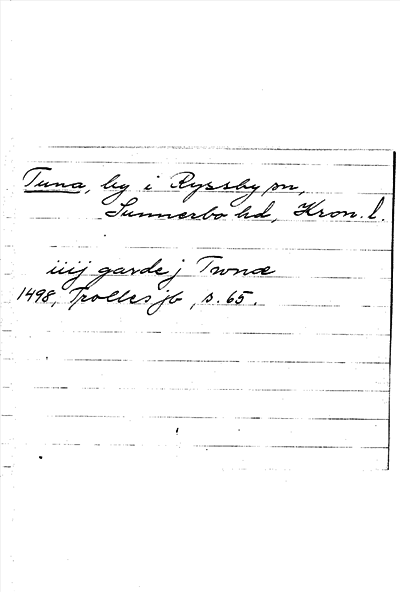 Tuna, by i Ryssby sn,
Sunnerbo hd, Kron. l.
iiij garde j Twnæ
1498, Trolles jb, s. 65.